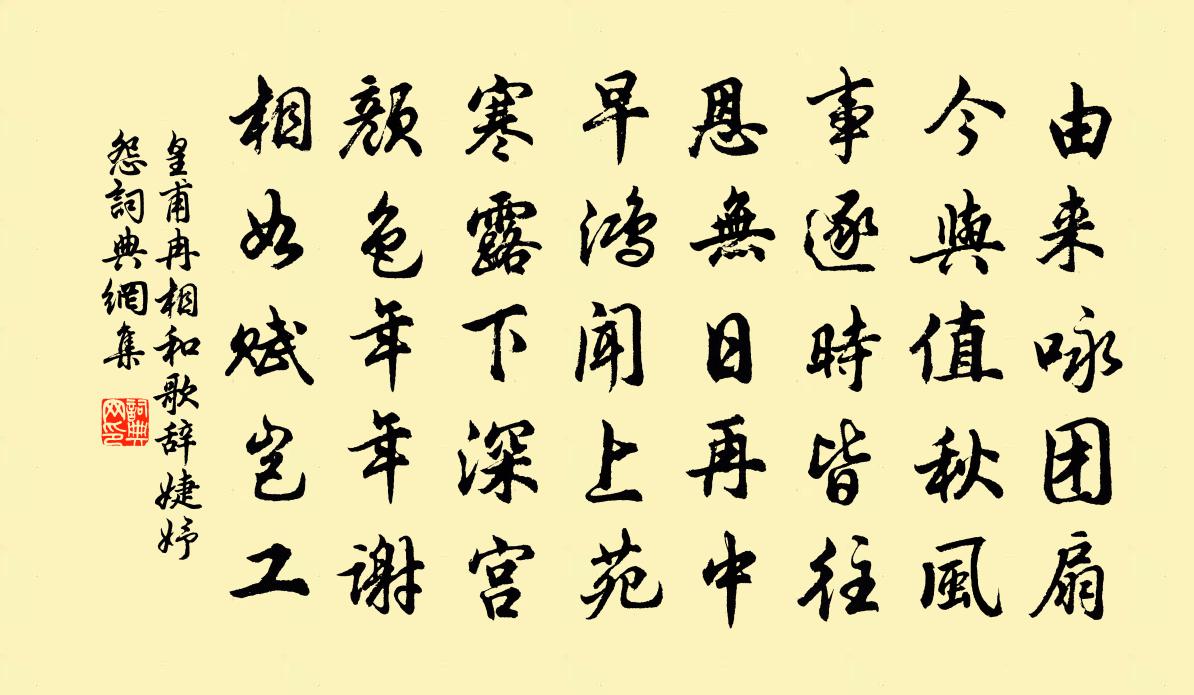 由来咏团扇
今與值秋風
事逐時皆往
恩無日再中
早鸿闻上苑
寒露下深宫
颜色年年谢
相如赋岂工
皇甫冉相和歌辞婕妤
怨詞典網集
詞典
网印